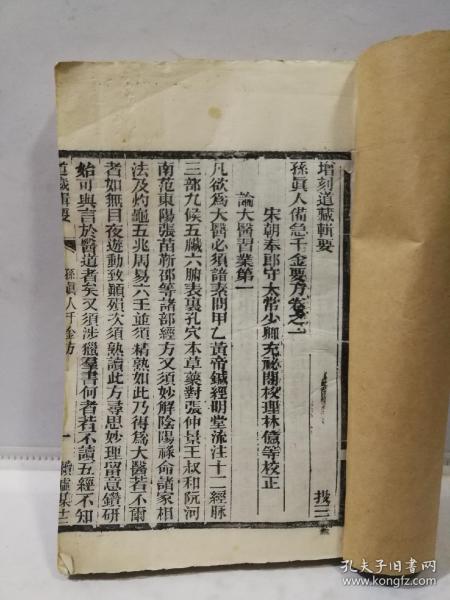 增刻道藏輯要
孫眞人備急千金要方卷之一
宋朝奉郎守太常少卿充祕閣校理林億等校正
論大醫習業第一
凡欲爲大醫必須諳素問甲乙黃帝鍼經明堂流注十二經脉
三部九候五臟六腑表裏孔穴本草藥對張仲景王叔和阮河
南范東陽張苗靳邵等諸部經方又須妙解陰陽祿命諸家相
法及灼龜五兆周易六壬並須精熟如此乃得爲大醫若不爾
者如無目夜遊動致顚殞次須熟讀此方尋思妙理留意鑽研
始可與言於醫道者矣又須涉獵羣書何者若不讀五經不知
道藏輯要
孫眞人千金方
一
孔夫子旧书网
www.kongfz.com